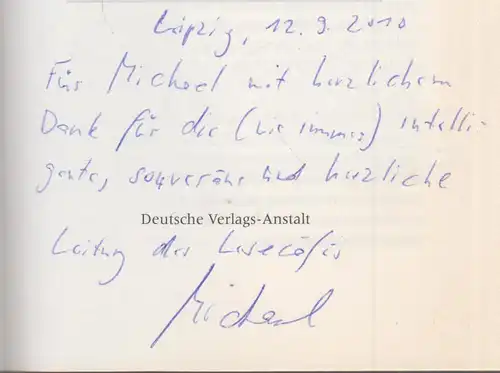 Leipzig, 12. 9. 2010
Für Michael mit herzlichem
Dank für die (wie immer) intelli-
gente, souveräne und herzliche
Deutsche Verlags-Anstalt
Leitung des Lesecafés
Michael